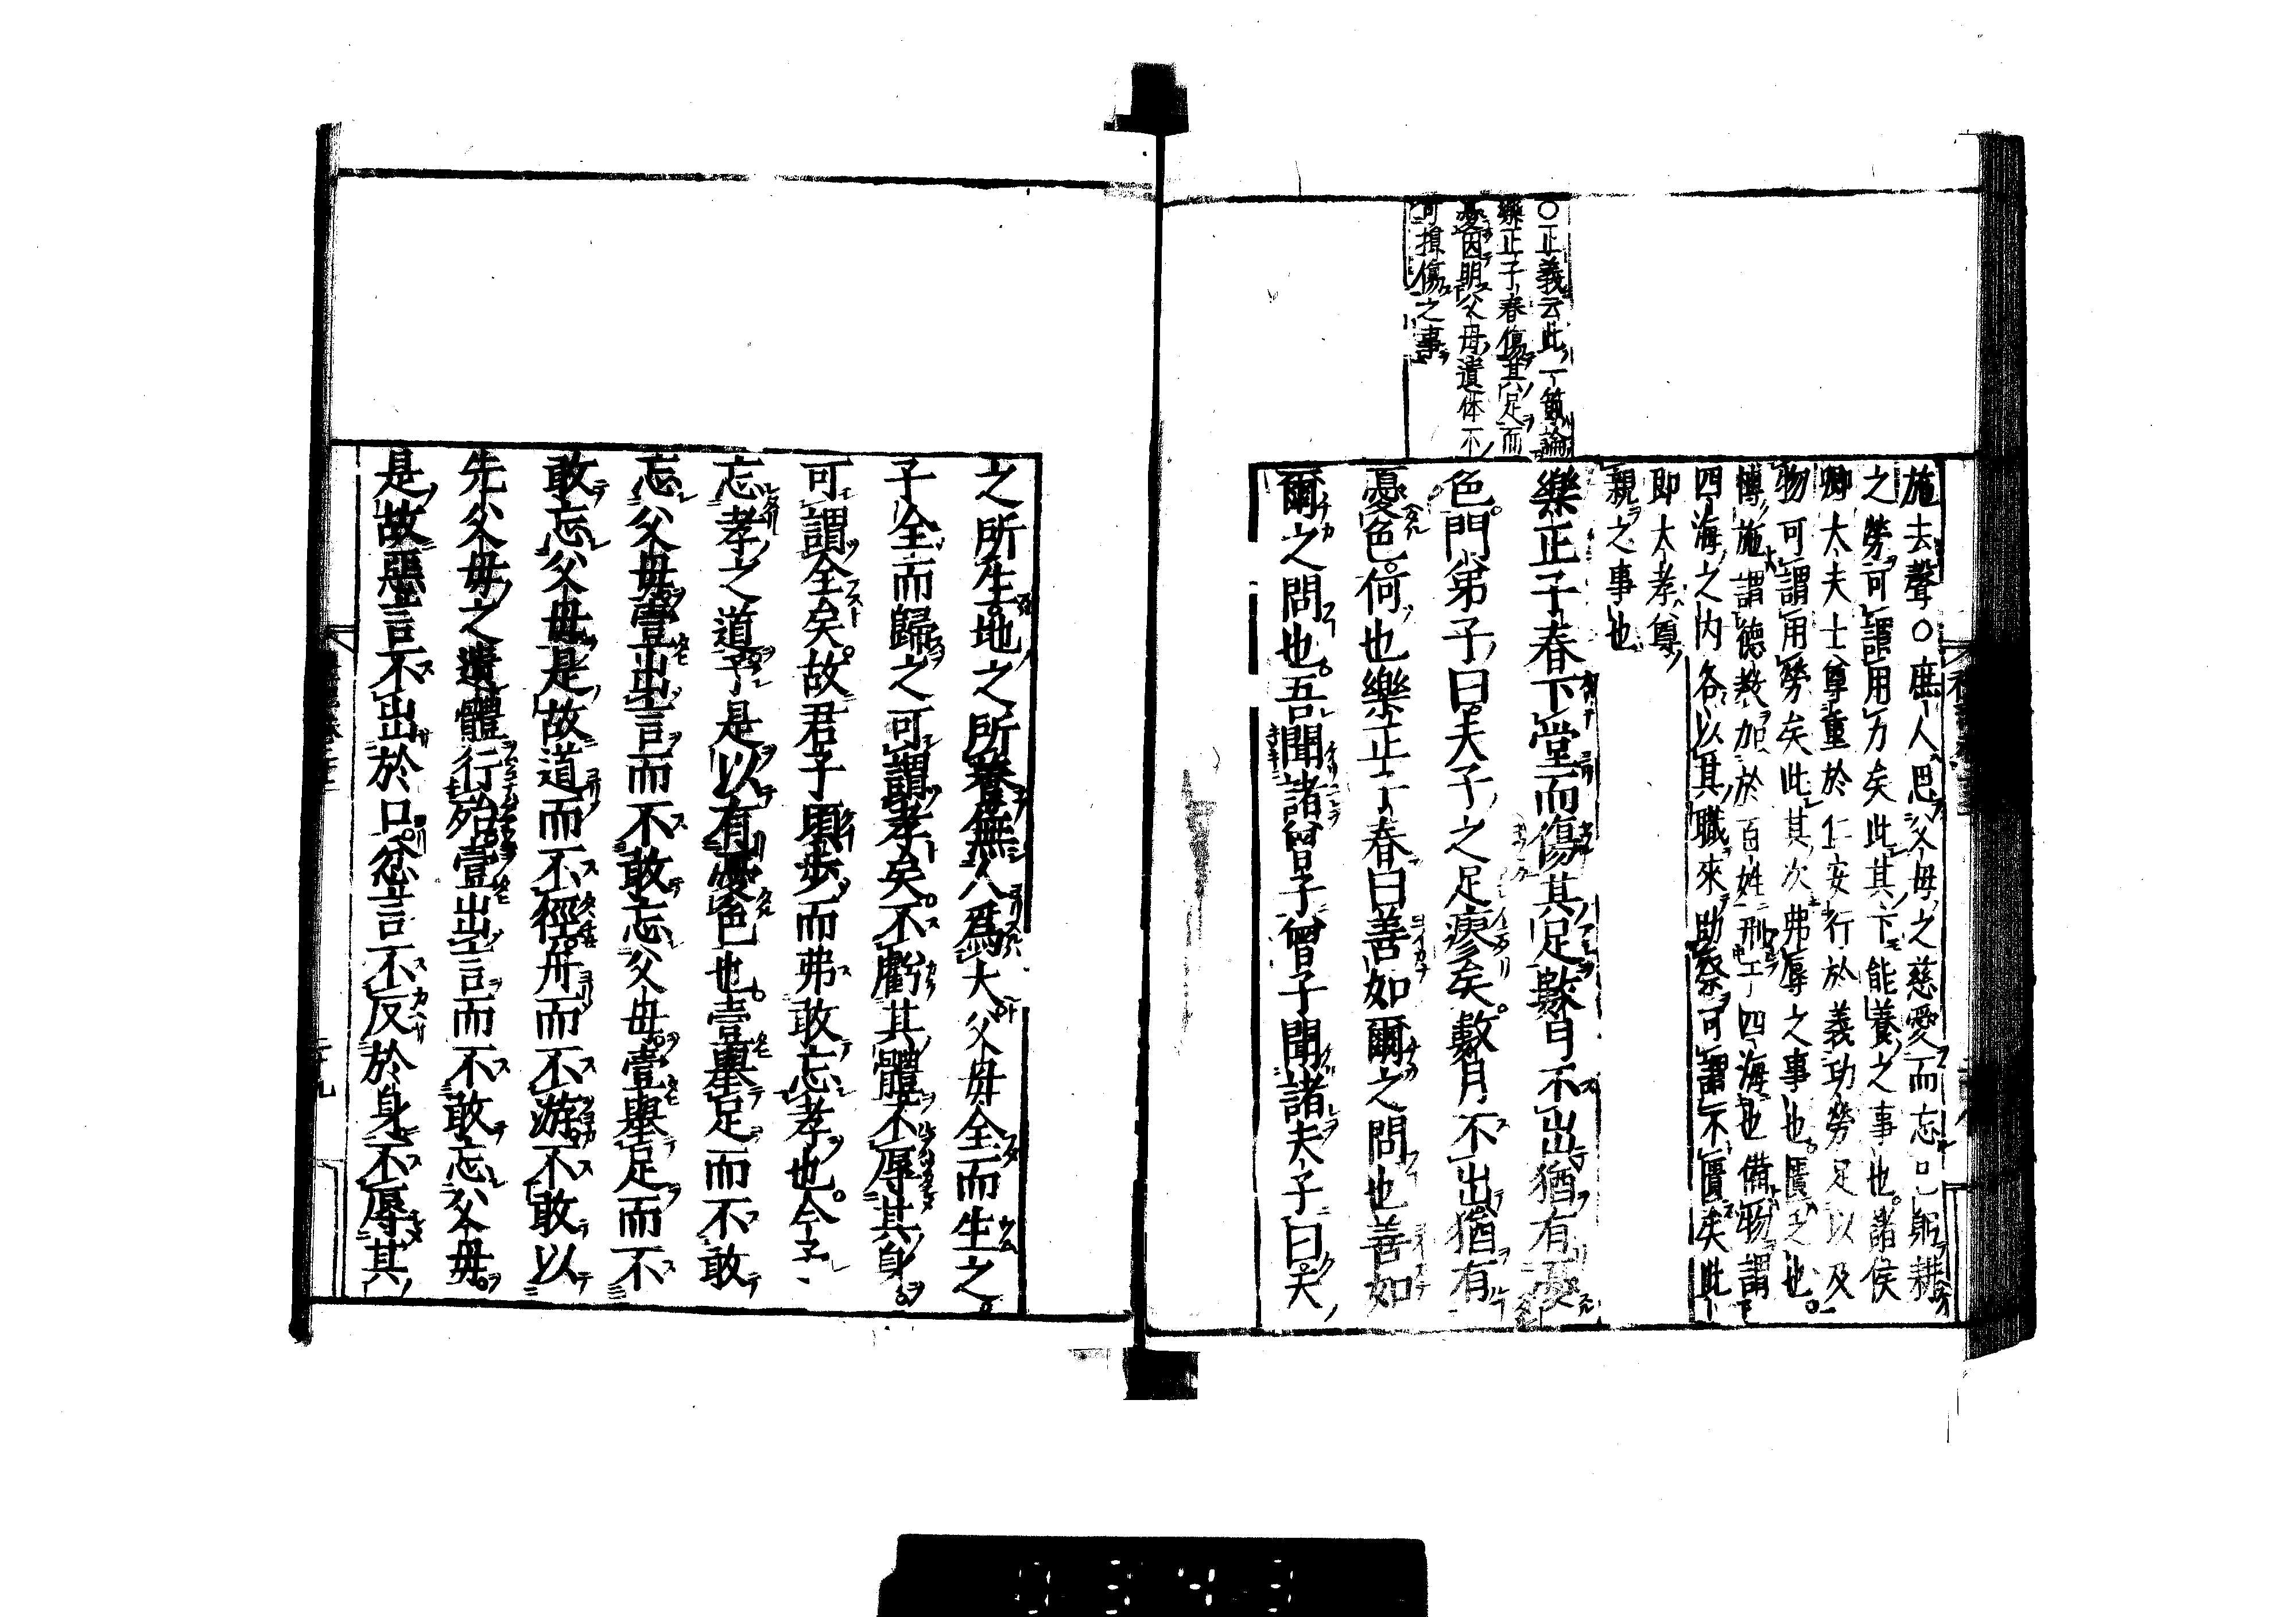 ○正義云此一節論
樂正子春傷其足而
憂因明父母遺体不
可損傷之事
施去聲○庶人思父母之慈愛而忘己躬耕
之勞可謂用力矣此其下能養之事也諸侯
卿大夫士尊重於仁安行於義功勞足以及
物可謂用勞矣此其次弗辱之事也匱乏也
博施謂德教加於百姓刑于四海也備物謂
四海之內各以其職來助祭可謂不匱矣此
即大孝尊
親之事也
樂正子春下堂而傷其足數月不出猶有憂
色門弟子曰夫子之足瘳矣數月不出猶有
憂色何也樂正子春曰善如爾之問也善如
爾之問也吾聞諸曾子曾子聞諸夫子曰天
之所生地之所養無人爲大父母全而生之
子全而歸之可謂孝矣不虧其體不辱其身
可謂全矣故君子頃步而弗敢忘孝也今予
忘孝之道予是以有憂色也壹舉足而不敢
忘父母壹出言而不敢忘父母壹舉足而不
敢忘父母是故道而不徑舟而不游不敢以
先父母之遺體行殆壹出言而不敢忘父母
是故惡言不出於口忿言不反於身不辱其
二十九
0343